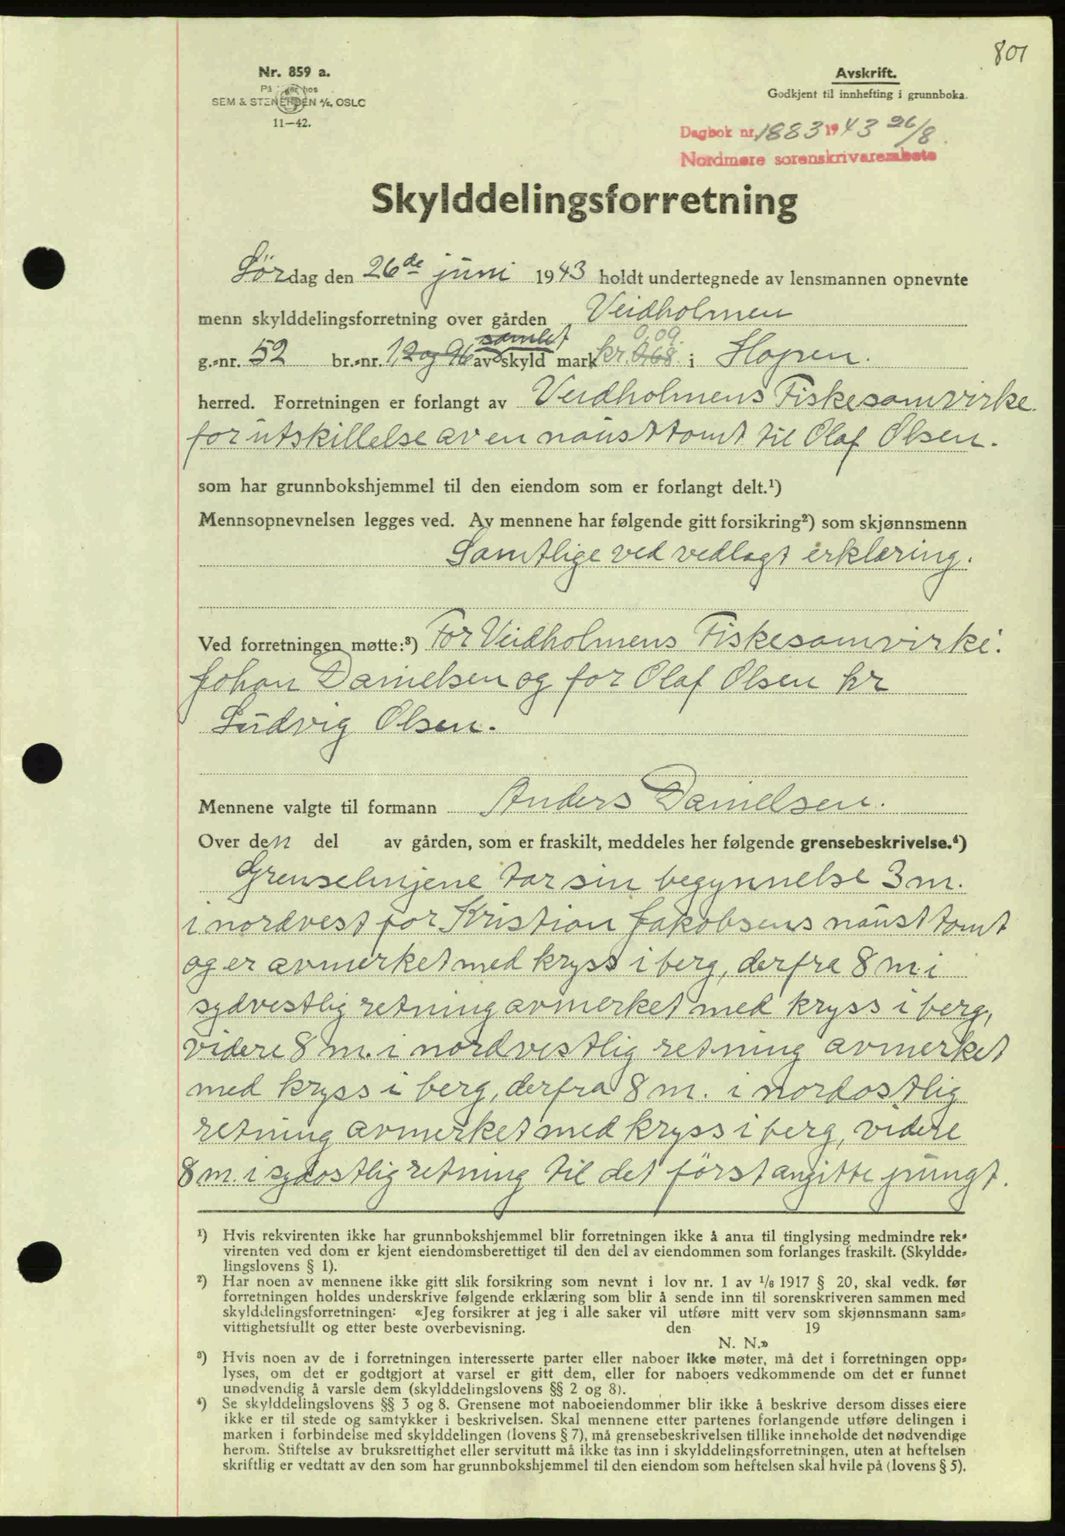 801
Nr. 859 a.
SEM & STENERSEN A/S, OSLO
11-42.
Avskrift.
Godkjent til innhefting i grunnboka.
Dagbok nr. 1883 1943 26/8
Nordmøre sorenskriverembete
Skylddelingsforretning
Lördag den 26de juni 1943 holdt undertegnede av lensmannen opnevnte
menn skylddelingsforretning over gården Veidholmen
samlet 0,09
g.-nr. 52 br.-nr. 1,2 og 96 av skyld mark kr. 0,68 i Hopen.
herred. Forretningen er forlangt av Veidholmens Fiskesamvirke
for utskillelse av en nausttomt til Olaf Olsen.
som har grunnbokshjemmel til den eiendom som er forlangt delt.¹)
Mennsopnevnelsen legges ved. Av mennene har følgende gitt forsikring²) som skjønnsmenn
Samtlige ved vedlagt erklæring.
Ved forretningen møtte:³) For Veidholmens Fiskesamvirke:
Johan Danielsen og for Olaf Olsen hr
Ludvig Olsen.
Mennene valgte til formann Anders Danielsen.
Over den del av gården, som er fraskilt, meddeles her følgende grensebeskrivelse.⁴)
Grenselinjene tar sin begynnelse 3 m.
i nordvest for Kristian Jakobsens nausttomt
og er avmerket med kryss i berg, derfra 8 m. i
sydvestlig retning avmerket med kryss i berg,
videre 8 m. i nordvestlig retning avmerket
med kryss i berg, derfra 8 m. i nordostlig
retning avmerket med kryss i berg, videre
8 m. i sydostlig retning til det förstangitte pungt.
¹) Hvis rekvirenten ikke har grunnbokshjemmel blir forretningen ikke å anta til tinglysing medmindre rek-
virenten ved dom er kjent eiendomsberettiget til den del av eiendommen som forlanges fraskilt. (Skyldde-
lingslovens § 1).
²) Har noen av mennene ikke gitt slik forsikring som nevnt i lov nr. 1 av 1/6 1917 § 20, skal vedk. før
forretningen holdes underskrive følgende erklæring som blir å sende inn til sorenskriveren sammen med
skylddelingsforretningen: «Jeg forsikrer at jeg i alle saker vil utføre mitt verv som skjønnsmann sam-
vittighetsfullt og etter beste overbevisning. den 19
N. N.»
³) Hvis noen av de i forretningen interesserte parter eller naboer ikke møter, må det i forretningen opp-
lyses, om det er godtgjort at varsel er gitt dem, eller for naboers vedkommende om det er funnet
unødvendig å varsle dem (skylddelingslovens §§ 2 og 8).
⁴) Se skylddelingslovens §§ 3 og 8. Grensene mot naboeiendommer blir ikke å beskrive dersom disses eiere
ikke er til stede og samtykker i beskrivelsen. Skal mennene etter partenes forlangende utføre delingen i
marken i forbindelse med skylddelingen (lovens § 7), må grensebeskrivelsen tillike inneholde det nødvendige
herom. Stiftelse av bruksrettighet eller servitutt må ikke tas inn i skylddelingsforretningen, uten at heftelsen
skriftlig er vedtatt av den som har grunnbokshjemmel til den eiendom som heftelsen skal hvile på (lovens § 5).